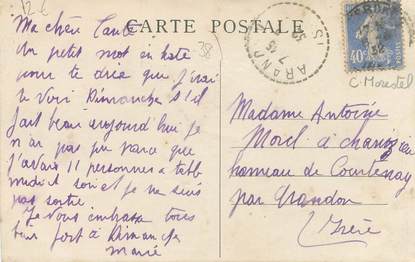 12 €
CARTE POSTALE
Ma chère Tante
Un petit mot en hate
pour te dire que j'irai
te voir Dimanche s'il
fait beau aujourd'hui je
n'ai pas pu parce que
j'avais 11 personnes a table
midi soir et je ne suis
pas sortie
Je vous embrasse tous
bien fort à Dimanche
Marie
38
ARAND
40
C. Morestel
Madame Antoine
Morel à
hameau de Courtenay
par
Isère